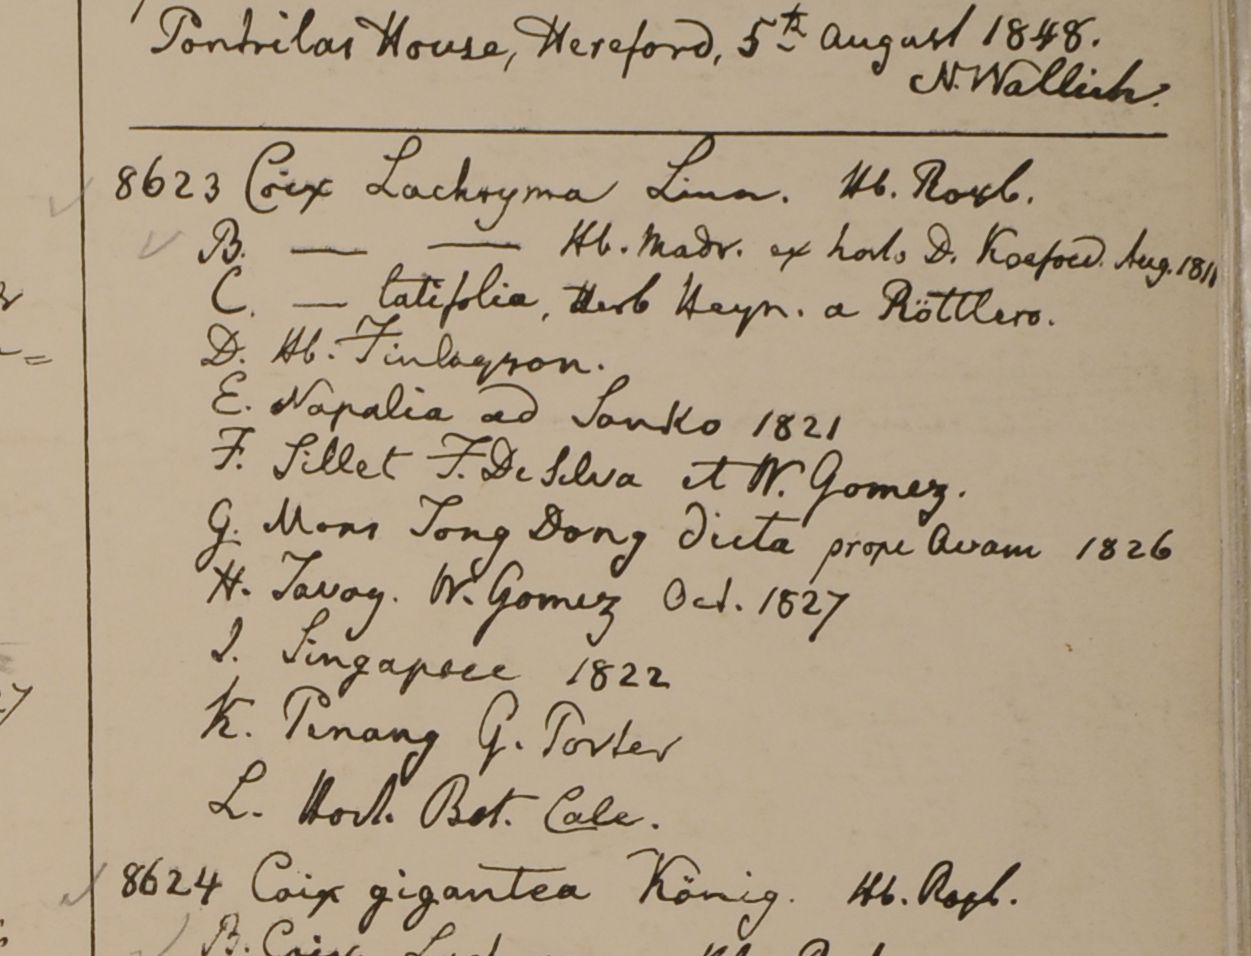 Pontrilas House, Hereford, 5th August 1848.
N. Wallich.
8623 Coix Lachryma Linn. Hb. Roxb.
B. — — Hb. Madr. ex horto D. Koefoed. Aug. 1811
C. — latifolia, Herb Heyn. a Röttlero.
D. Hb. Finlayson.
E. Napalia ad Sanko 1821
F. Sillet F. De Silva et W. Gomez.
G. Mons Tong Dong dicta prope Avam 1826
H. Tavoy. W. Gomez Oct. 1827
I. Singapore 1822
K. Penang G. Porter
L. Hort. Bot. Calc.
8624 Coix gigantea König. Hb. Roxb.
B. Coix